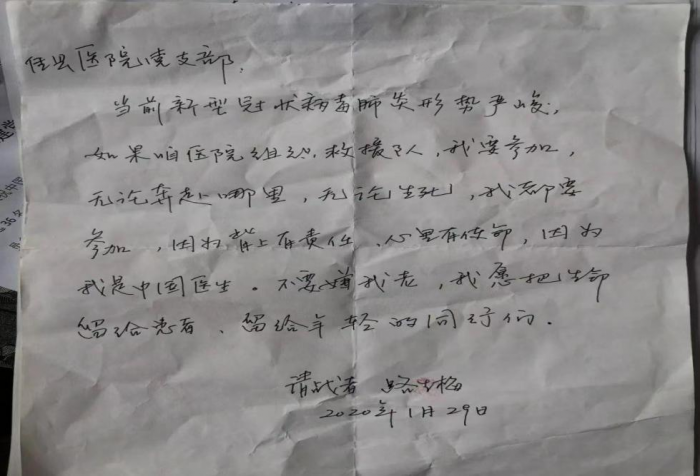 县医院党支部,
当前新型冠状病毒肺炎形势严峻,
如果咱医院组织救援队,我要参加,
无论奔赴哪里,无论生死,我都要
参加,因为肩上有责任、心里有使命,因为
我是中国医生。不要嫌我老,我愿把生命
留给患者、留给年轻的同行们.
请战者 路 梅
2020年1月29日